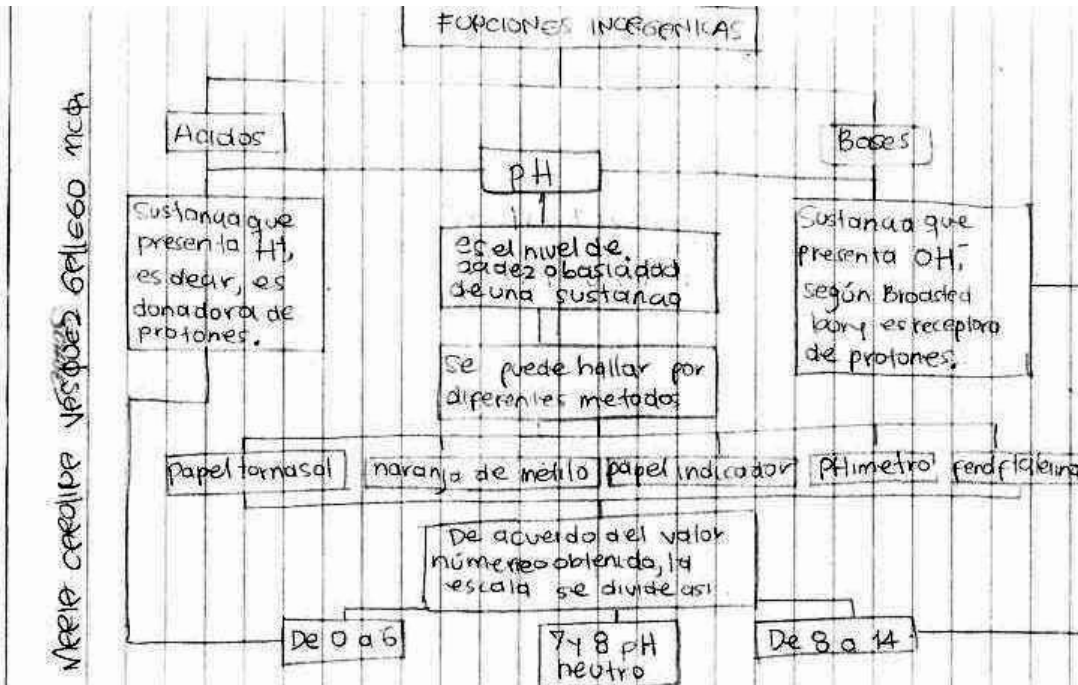 FUNCIONES INORGENICAS
Acidos
Bases
pH
Sustancia que
presenta H+,
es decir, es
donadora de
protones.
es el nivel de
acidez o basicidad
de una sustancia
Sustancia que
presenta OH-,
según Broasted
lowry es receptora
de protones.
se puede hallar por
diferentes metodos
papel tornasol
naranja de metilo
papel indicador
pHimetro
fenolftaleina
De acuerdo del valor
númereo obtenido, la
escala se divide asi
De 0 a 6
7 y 8 pH
neutro
De 8 a 14
MARIA CAROLINA VASQUEZ GALLEGO